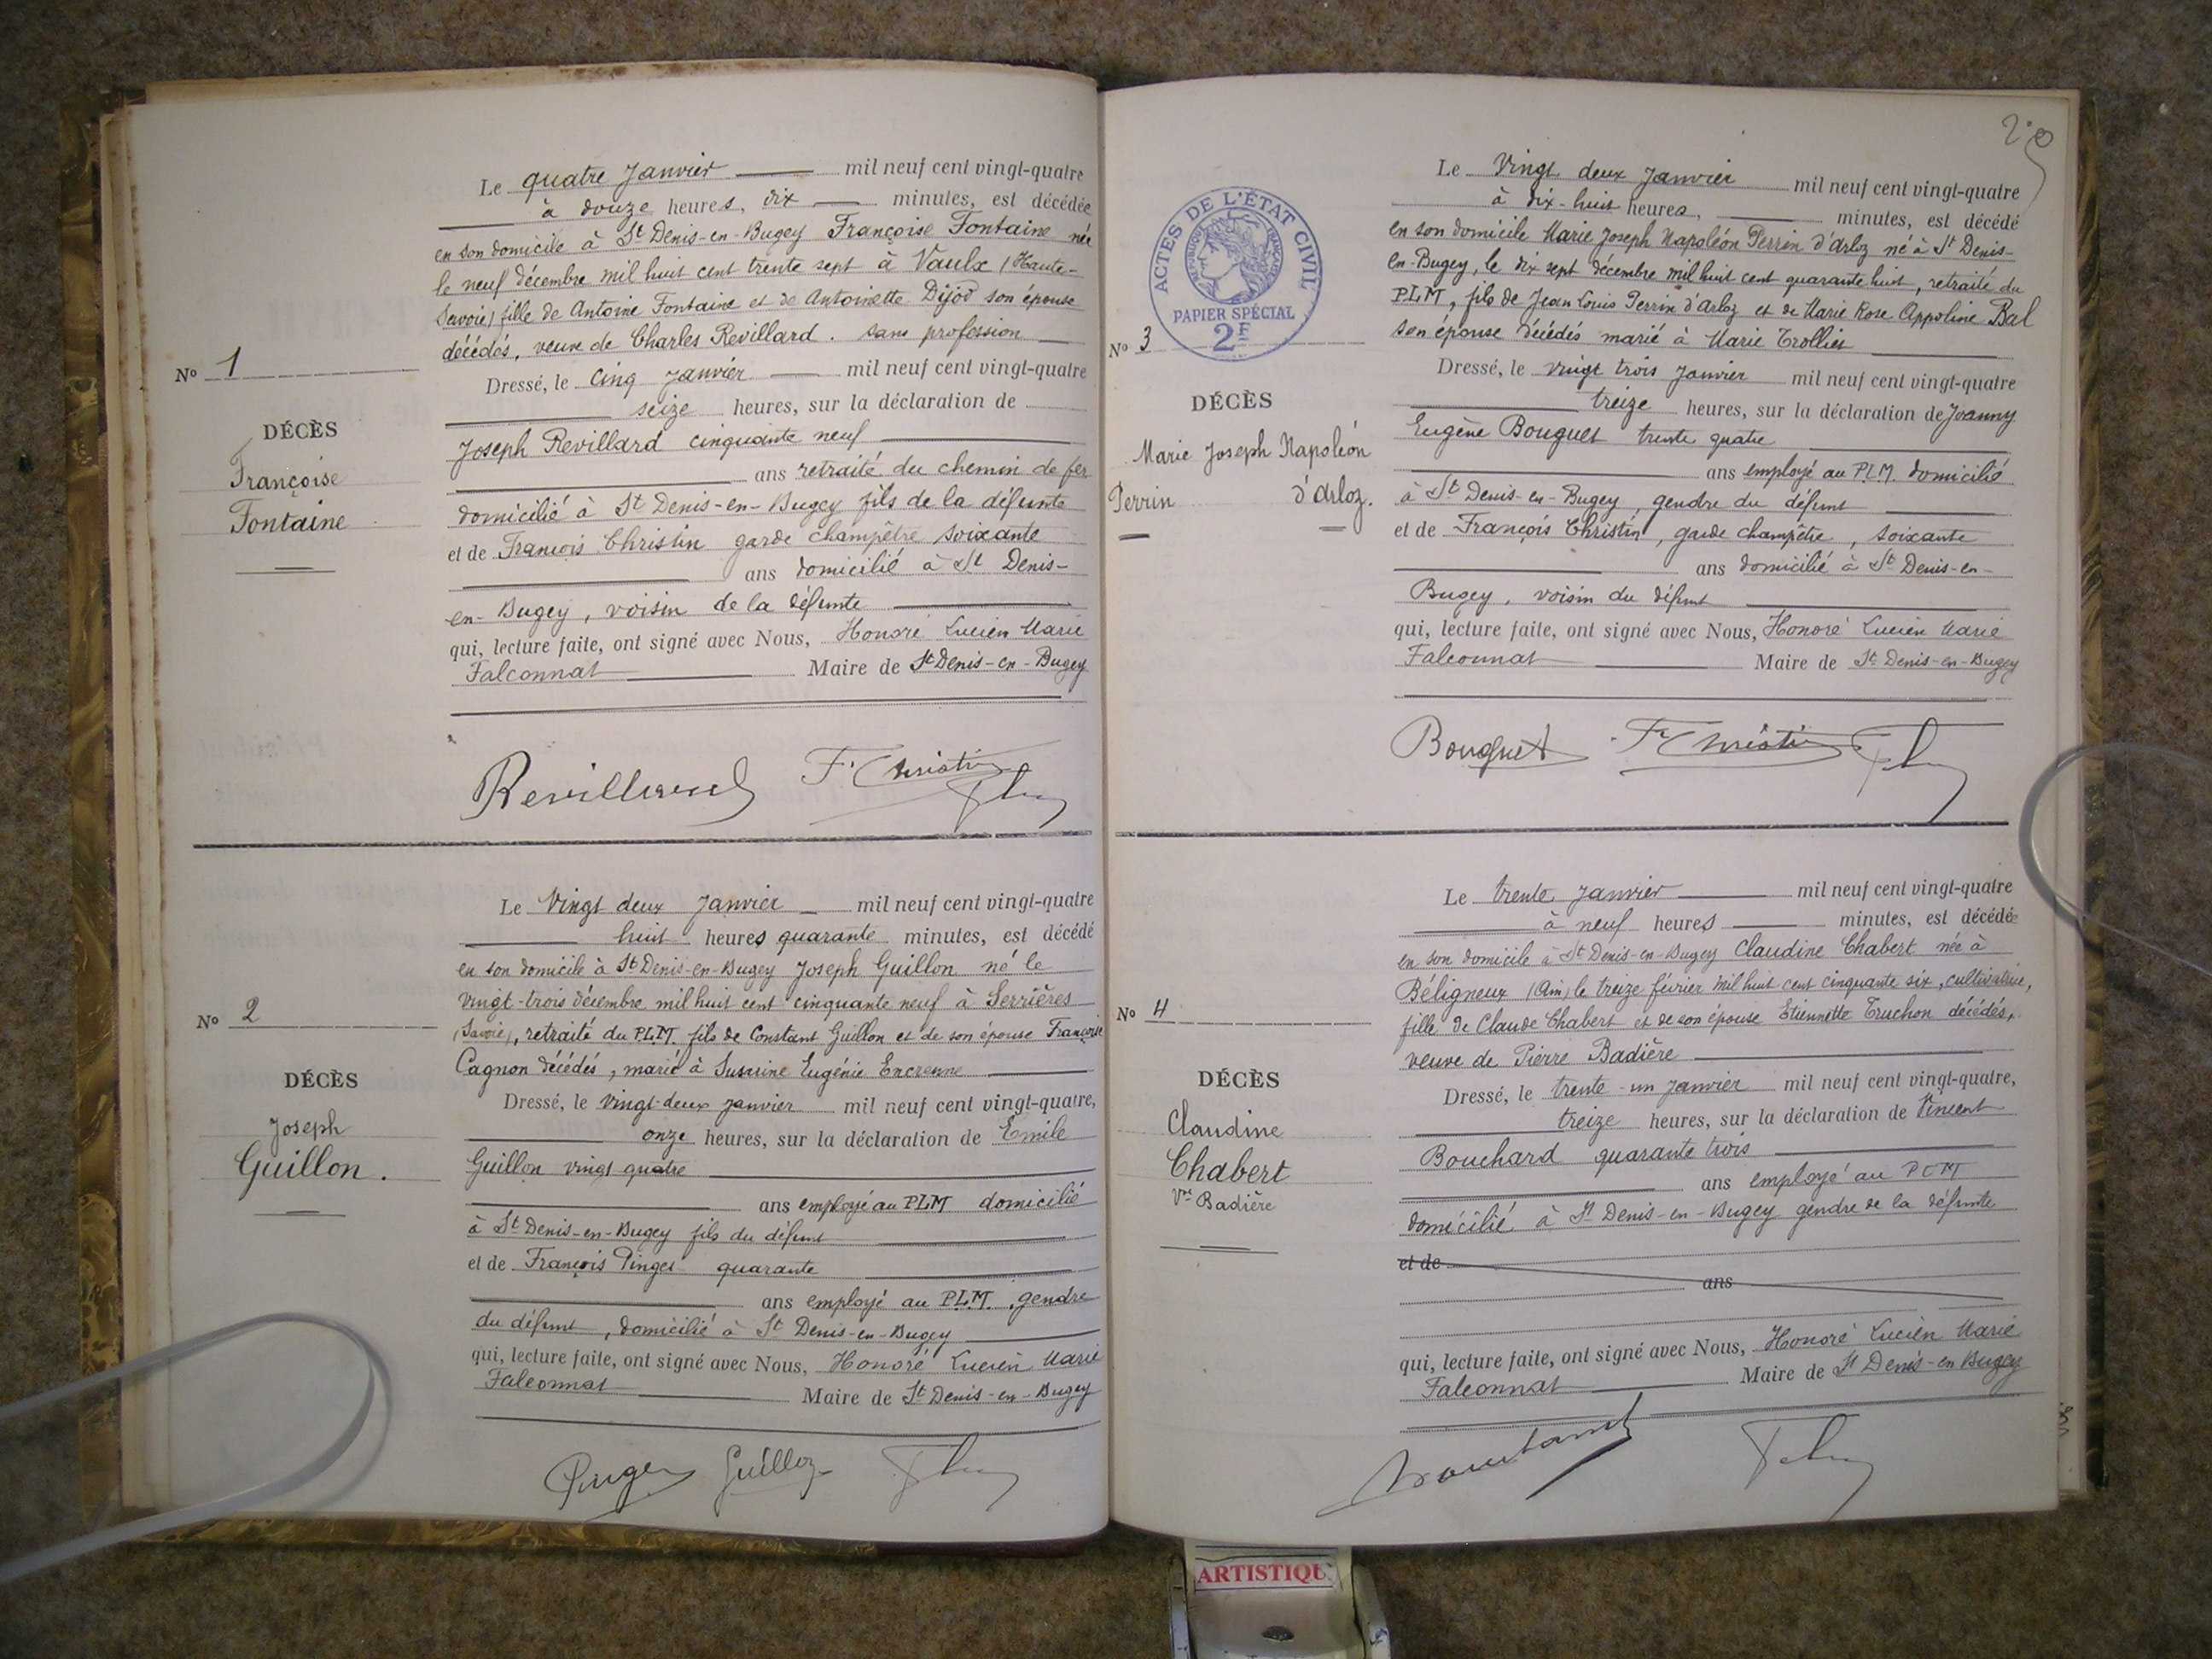 Le quatre Janvier mil neuf cent vingt-quatre
à douze heures, dix minutes, est décédée
en son domicile à St Denis-en-Bugey Françoise Fontaine née
le neuf décembre mil huit cent trente sept à Vaulx (Haute-
Savoie) fille de Antoine Fontaine et de Antoinette Dijod son épouse
décédés, veuve de Charles Revillard. sans profession
No 1
Dressé, le cinq janvier mil neuf cent vingt-quatre
seize heures, sur la déclaration de
DÉCÈS
Françoise
Fontaine
Joseph Revillard cinquante neuf
ans retraité du chemin de fer
domicilié à St Denis-en-Bugey fils de la défunte
et de François Christin garde champêtre soixante
ans domicilié à St Denis-
en-Bugey, voisin de la défunte
qui, lecture faite, ont signé avec Nous, Honoré Lucien Marie
Falconnat Maire de St Denis-en-Bugey
Revillard Fs Christin
Le Vingt deux Janvier mil neuf cent vingt-quatre
huit heures quarante minutes, est décédé
en son domicile à St Denis-en-Bugey Joseph Guillon né le
vingt-trois décembre mil huit cent cinquante neuf à Serrières
(Savoie), retraité du P.L.M. fils de Constant Guillon et de son épouse Françoise
Cagnon décédés, marié à Eugénie Encrenne
No 2
DÉCÈS
Joseph
Guillon.
Dressé, le vingt-deux janvier mil neuf cent vingt-quatre,
onze heures, sur la déclaration de Emile
Guillon vingt quatre
ans employé au PLM domicilié
à St Denis-en-Bugey fils du défunt
et de François Pinget quarante
ans employé au P.L.M. gendre
du défunt, domicilié à St Denis-en-Bugey
qui, lecture faite, ont signé avec Nous, Honoré Lucien Marie
Falconnat Maire de St Denis-en-Bugey
Guilloz
ACTES DE L'ÉTAT CIVIL
RÉPUBLIQUE FRANÇAISE
PAPIER SPÉCIAL
2F
Le Vingt deux Janvier mil neuf cent vingt-quatre
à dix-huit heures, minutes, est décédé
en son domicile Marie Joseph Napoléon Perrin d'Arloz né à St Denis-
en-Bugey, le dix sept décembre mil huit cent quarante huit, retraité du
P.L.M, fils de Jean Louis Perrin d'Arloz et de Marie Rose Appoline Bal
son épouse décédés marié à Marie Trollier
No 3
DÉCÈS
Marie Joseph Napoléon
Perrin d'Arloz.
Dressé, le vingt trois Janvier mil neuf cent vingt-quatre
treize heures, sur la déclaration de Joanny
Eugène Bouquet trente quatre
ans employé au P.L.M. domicilié
à St Denis-en-Bugey, gendre du défunt
et de François Christin, garde champêtre, soixante
ans domicilié à St Denis-en-
Bugey, voisin du défunt
qui, lecture faite, ont signé avec Nous, Honoré Lucien Marie
Falconnat Maire de St Denis-en-Bugey
Bouquet Fs Christin
Le trente Janvier mil neuf cent vingt-quatre
à neuf heures minutes, est décédée
en son domicile à St Denis-en-Bugey Claudine Chabert née à
Béligneux (Ain) le treize février mil huit cent cinquante six, cultivatrice,
fille de Claude Chabert et de son épouse Etiennette Truchon décédés,
veuve de Pierre Badière
No 4
DÉCÈS
Claudine
Chabert
Vve Badière
Dressé, le trente-un Janvier mil neuf cent vingt-quatre,
treize heures, sur la déclaration de Vincent
Bouchard quarante trois
ans employé au PLM
domicilié à St Denis-en-Bugey gendre de la défunte
et de
ans
qui, lecture faite, ont signé avec Nous, Honoré Lucien Marie
Falconnat Maire de St Denis-en-Bugey
ARTISTIQU